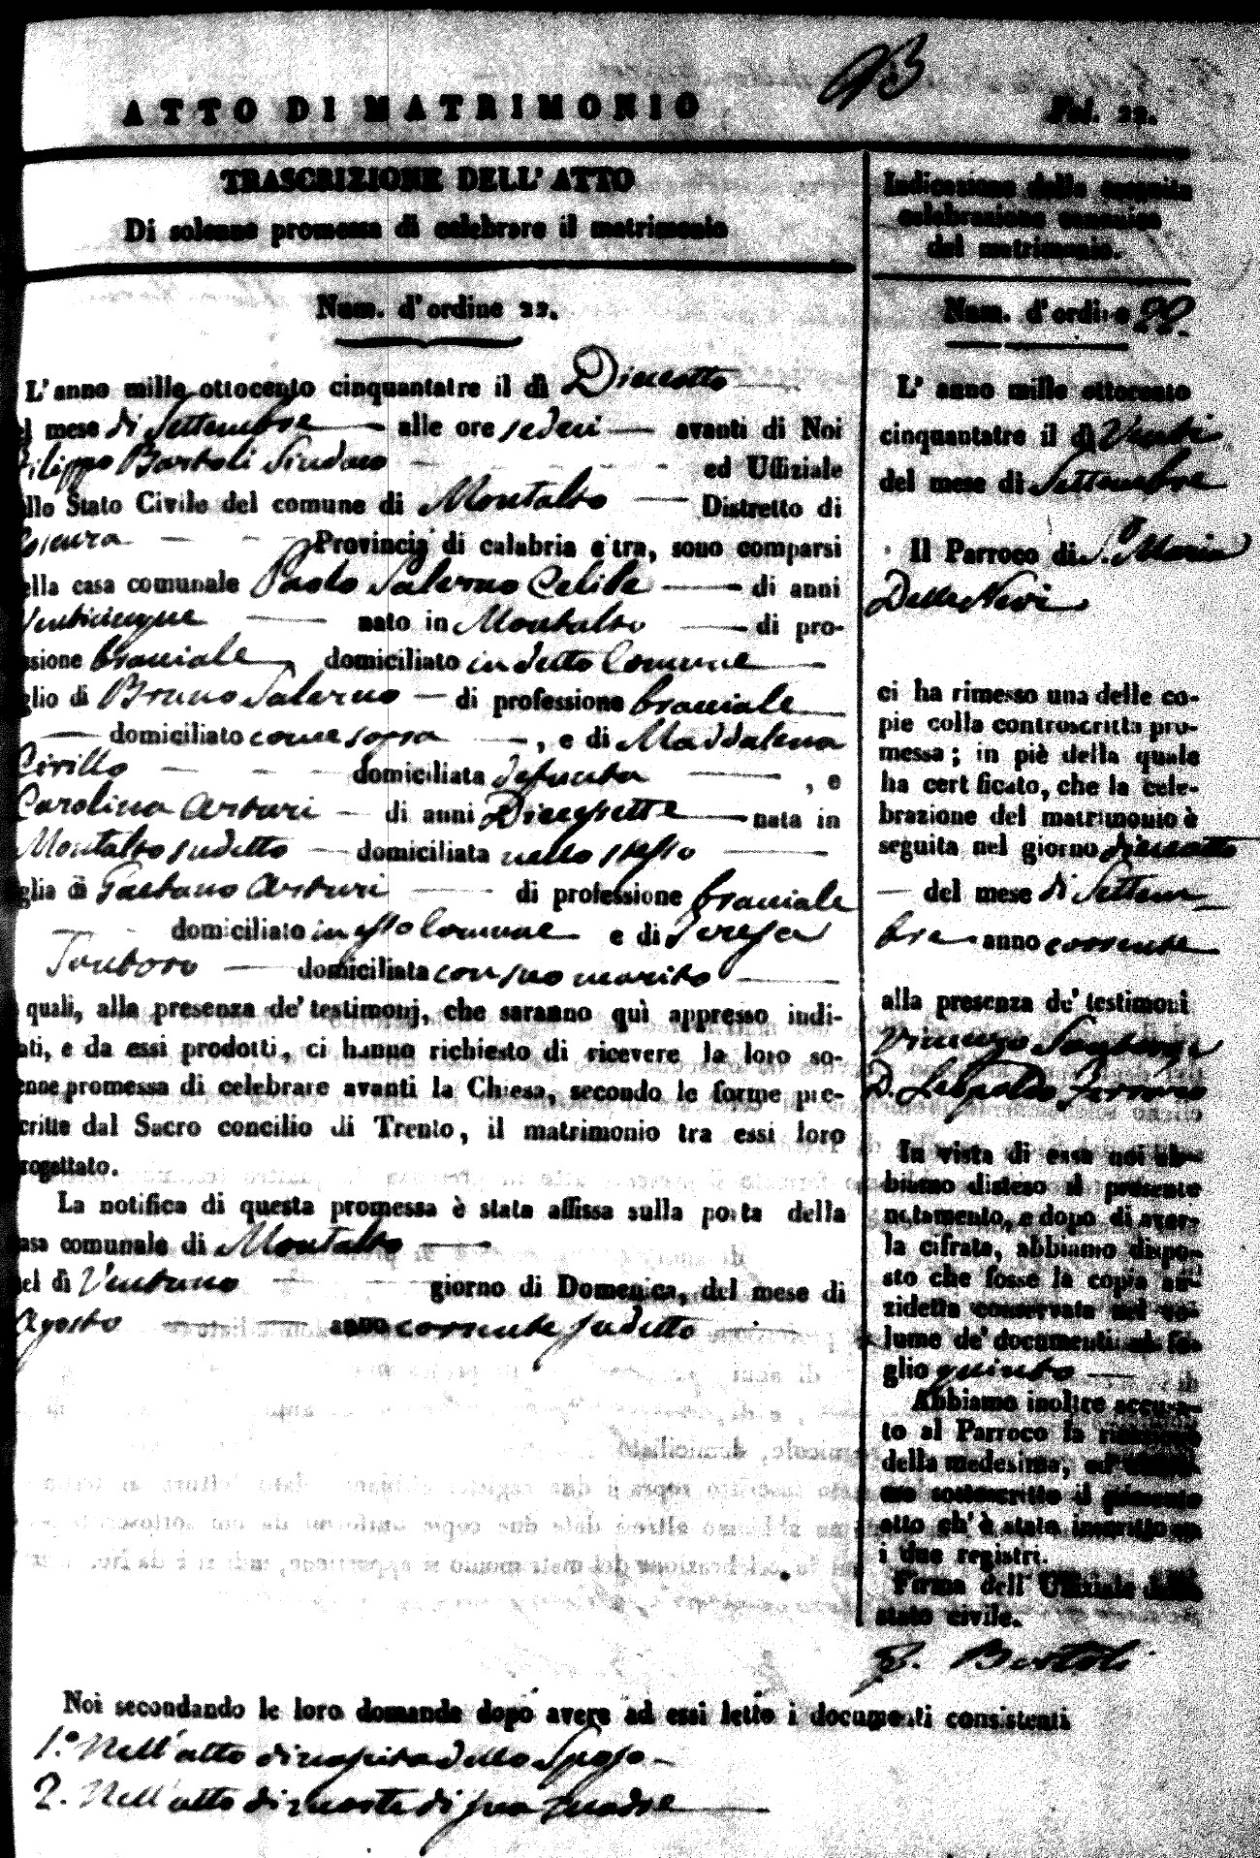 ATTO DI MATRIMONIO
Fol. 22.
TRASCRIZIONE DELL' ATTO
Di solenne promessa di celebrare il matrimonio
Num. d'ordine 22.
L'anno mille ottocento cinquantatre il dì Dieciotto
mese di Settembre alle ore sedeci avanti di Noi
Filippo Bartoli Sindaco ed Uffiziale
llo Stato Civile del comune di Montalto Distretto di
Cosenza Provincia di calabria citra, sono comparsi
ella casa comunale Paolo Salerno Celibe di anni
Venticinque nato in Montalto di pro-
ssione bracciale, domiciliato in detto Comune
glio di Bruno Salerno di professione bracciale
domiciliato come sopra, e di Maddalena
Cirillo domiciliata defunta, e
Carolina Arturi di anni Diecessette nata in
Montalto sudetto domiciliata nello stesso
glia di Gaetano Arturi di professione bracciale
domiciliato in esso Comune e di Teresa
domiciliata con suo marito
quali, alla presenza de' testimonj, che saranno quì appresso indi-
ati, e da essi prodotti, ci hanno richiesto di ricevere la loro so-
enne promessa di celebrare avanti la Chiesa, secondo le forme pre-
critte dal Sacro concilio di Trento, il matrimonio tra essi loro
rogettato.
La notifica di questa promessa è stata affissa sulla porta della
asa comunale di Montalto
el dì Ventuno giorno di Domenica, del mese di
Agosto anno corrente sudetto
Indicazione della seguita
celebrazione canonica
del matrimonio.
Num. d'ordine 22.
L' anno mille ottocento
cinquantatre il dì Venti
del mese di Settembre
Il Parroco di S.ª Maria
Della Nevi
ci ha rimesso una delle co-
pie colla controscritta pro-
messa; in piè della quale
ha certificato, che la cele-
brazione del matrimonio è
seguita nel giorno dieciotto
del mese di Settem
bre anno corrente
alla presenza de' testimoni
Vincenzo
D. Leopoldo Ferraro
In vista di essa noi ab-
biamo disteso il presente
notamento, e dopo di aver-
la cifrata, abbiamo dispo-
sto che fosse la copia an-
zidetta conservata nel vo-
lume de' documenti al fo-
glio quinto
Abbiamo inoltre accusa-
to al Parroco la ricezione
della medesima, ed abbia-
mo sottoscritto il presente
atto ch' è stato inscritto su
i due registri.
Firma dell' Uffiziale dello
stato civile.
F. Bartoli
Noi secondando le loro domande dopo avere ad essi letto i documenti consistenti
1.º Nell'atto di nascita dello Sposo
2. Nell'atto di morte di sua madre